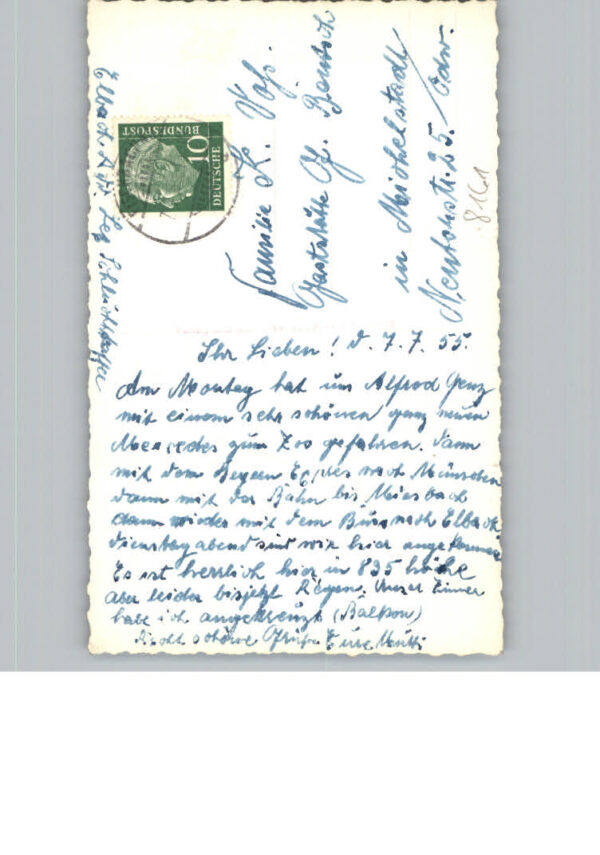 Ihr Lieben! d. 7.7.55.
Am Montag hat uns Alfred Genz
mit einem sehr schönen ganz neuen
Mercedes zum Zoo gefahren. Dann
mit dem nach München
dann mit der Bahn bis Miesbach
dann wieder mit dem Bus nach Elbach
Dienstag abend sind wir hier angekommen
Es ist herrlich hier in 835 höhe
aber leider bis jetzt Regen. Unser Zimmer
habe ich angekreuzt (Balkon)
Recht schöne Grüße Eure Mutti
Familie K.
Gaststätte
in Michelstadt / Odw.
str. 25.
8161
Elbach
DEUTSCHE
BUNDESPOST
10